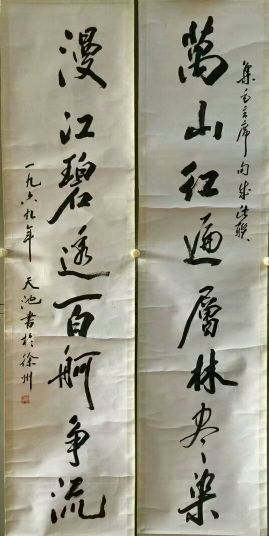 集毛主席句成此联
萬山红遍層林尽染
漫江碧透百舸争流
一九六九年
天池书於徐州